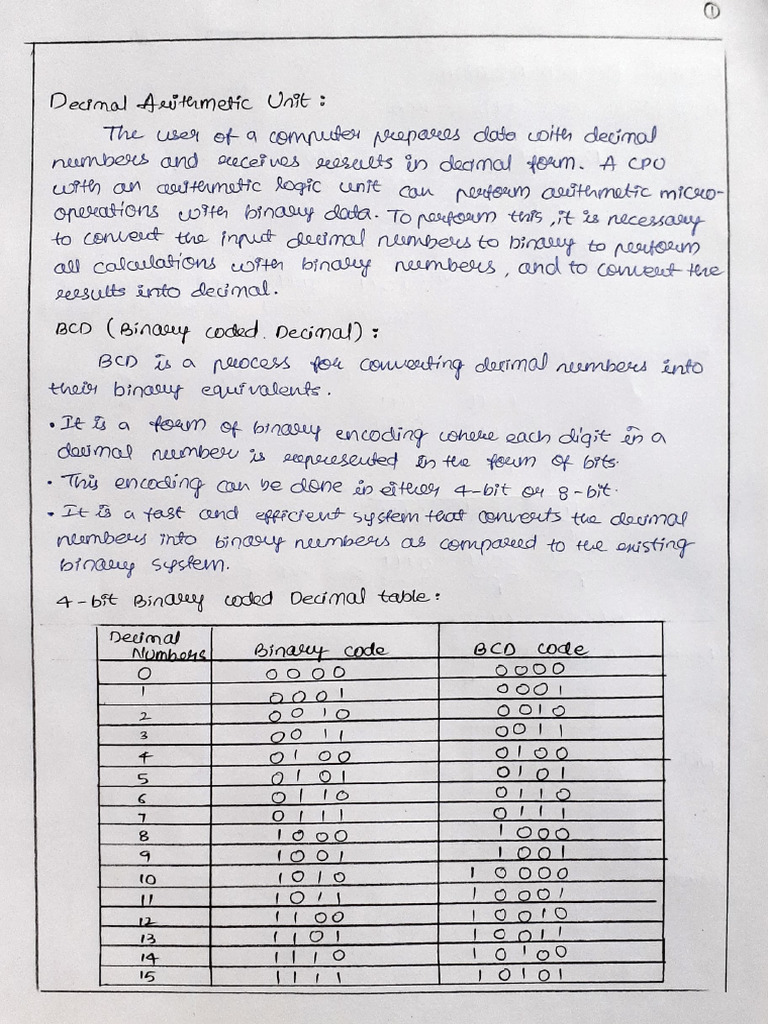 1
Decimal Arithmetic Unit :
The user of a computer prepares data with decimal
numbers and receives results in decimal form. A CPU
with an arithmetic logic unit can perform arithmetic micro-
operations with binary data. To perform this, it is necessary
to convert the input decimal numbers to binary to perform
all calculations with binary numbers, and to convert the
results into decimal.
BCD (Binary coded Decimal) :
BCD is a process for converting decimal numbers into
their binary equivalents.
• It is a form of binary encoding where each digit in a
decimal number is represented in the form of bits.
• This encoding can be done in either 4-bit or 8-bit.
• It is a fast and efficient system that converts the decimal
numbers into binary numbers as compared to the existing
binary system.
4-bit Binary coded Decimal table :
Decimal Numbers Binary code BCD code
0 0000 0000
1 0001 0001
2 0010 0010
3 0011 0011
4 0100 0100
5 0101 0101
6 0110 0110
7 0111 0111
8 1000 1000
9 1001 1001
10 1010 10000
11 1011 10001
12 1100 10010
13 1101 10011
14 1110 10100
15 1111 10101